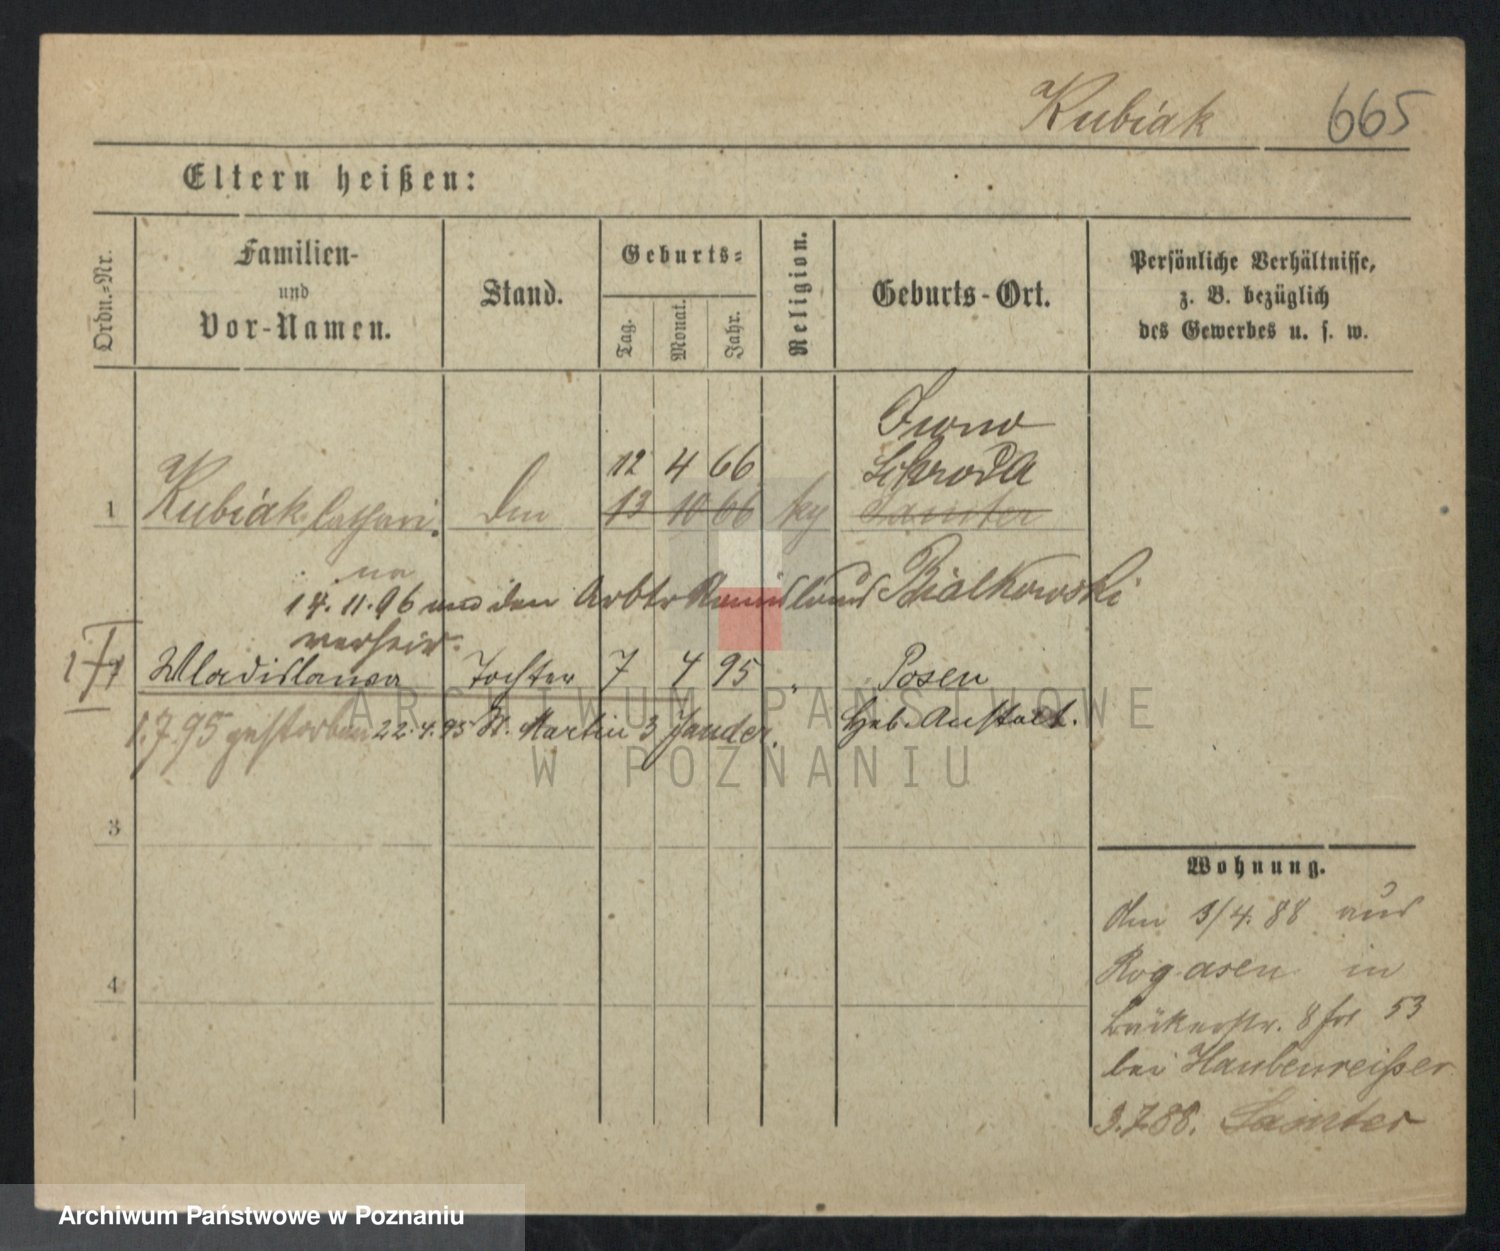 Kubiak 665
Eltern heißen:
Ordn.-Nr.
Familien-
und
Vor-Namen.
Stand.
Geburts-
Tag.
Monat.
Jahr.
Religion.
Geburts-Ort.
Persönliche Verhältnisse,
z. B. bezüglich
des Gewerbes u. s. w.
Schroda
12 4 66
1 Kubiak 13 10 66 Samter
14.11.96 den Arbtr Bialkowski
verheir.
Wladislawa Tochter 7 4 95 " Posen
1.7.95 gestorben 22.4.95 St. Martin 3 Geb. Anstalt.
3
4
Wohnung.
3/4.88 aus
Rogasen in
53
bei Haubenreißer
3.7.88. Samter
ARCHIWUM PAŃSTWOWE
W POZNANIU
Archiwum Państwowe w Poznaniu